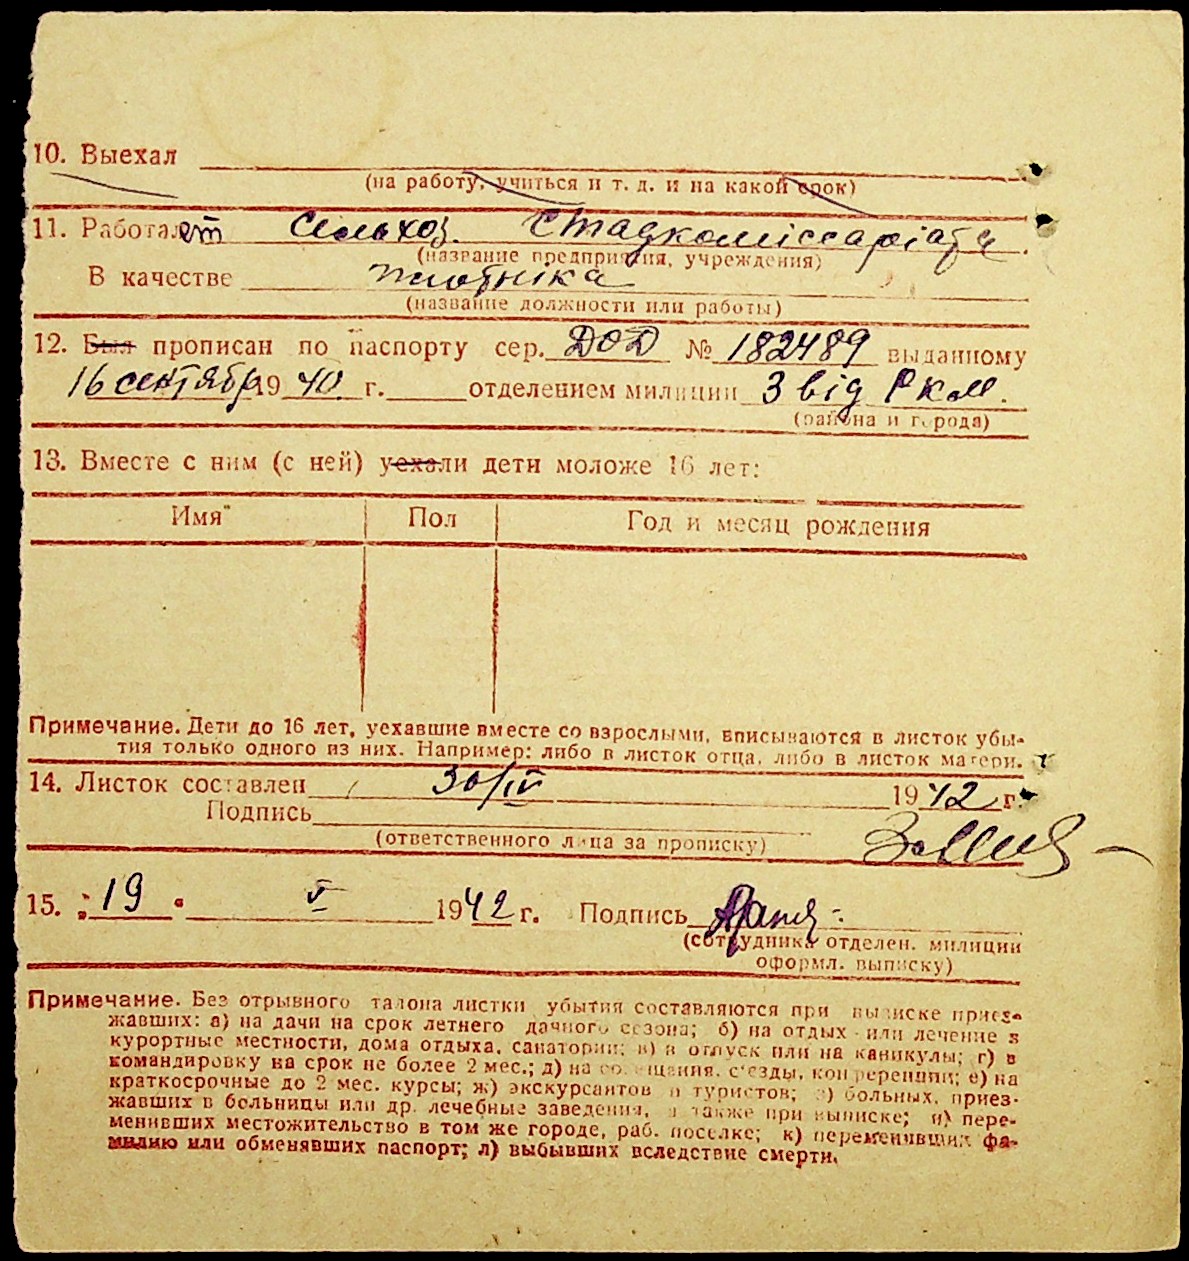 10. Выехал
(на работу, учиться и т. д. и на какой срок)
11. Работает Сельхоз. Стадкомiссарiата
(название предприятия, учреждения)
В качестве плотнiка
(название должности или работы)
12. Был прописан по паспорту сер. ДОД № 182489 выданному
16 сентября 1940 г. отделением милиции 3 вiд Р км.
(района и города)
13. Вместе с ним (с ней) уехали дети моложе 16 лет:
Имя Пол Год и месяц рождения
Примечание. Дети до 16 лет, уехавшие вместе со взрослыми, вписываются в листок убы-
тия только одного из них. Например: либо в листок отца, либо в листок матери.
14. Листок составлен 30/IV 1942 г.
Подпись
(ответственного лица за прописку)
15. „19" V 1942 г. Подпись
(сотрудника отделен. милиции
оформл. выписку)
Примечание. Без отрывного талона листки убытия составляются при выписке приез-
жавших: а) на дачи на срок летнего дачного сезона; б) на отдых или лечение в
курортные местности, дома отдыха, санатории; в) в отпуск или на каникулы; г) в
командировку на срок не более 2 мес.; д) на совещания, съезды, конференции; е) на
краткосрочные до 2 мес. курсы; ж) экскурсантов и туристов; з) больных, приез-
жавших в больницы или др. лечебные заведения, а также при выписке; и) пере-
менивших местожительство в том же городе, раб. поселке; к) переменивших фа-
милию или обменявших паспорт; л) выбывших вследствие смерти.